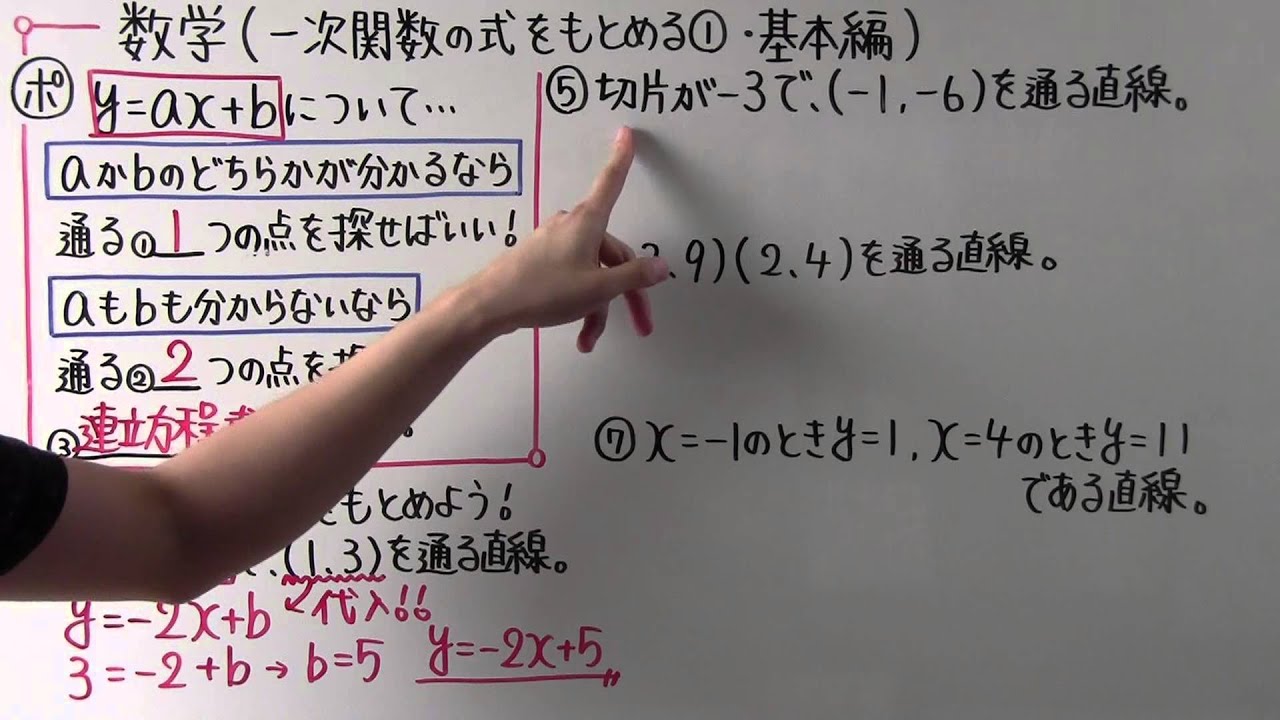 数学(一次関数の式をもとめる①・基本編)
ポ y=ax+bについて…
aかbのどちらかが分かるなら
通る① 1 つの点を探せばいい！
aもbも分からないなら
通る② 2 つの点を
③連立方程
をもとめよう！
(1、3)を通る直線。
y=-2x+b 代入!!
3=-2+b→b=5 y=-2x+5
⑤切片が-3で、(-1,-6)を通る直線。
、9)(2、4)を通る直線。
⑦x=-1のときy=1,x=4のときy=11
である直線。